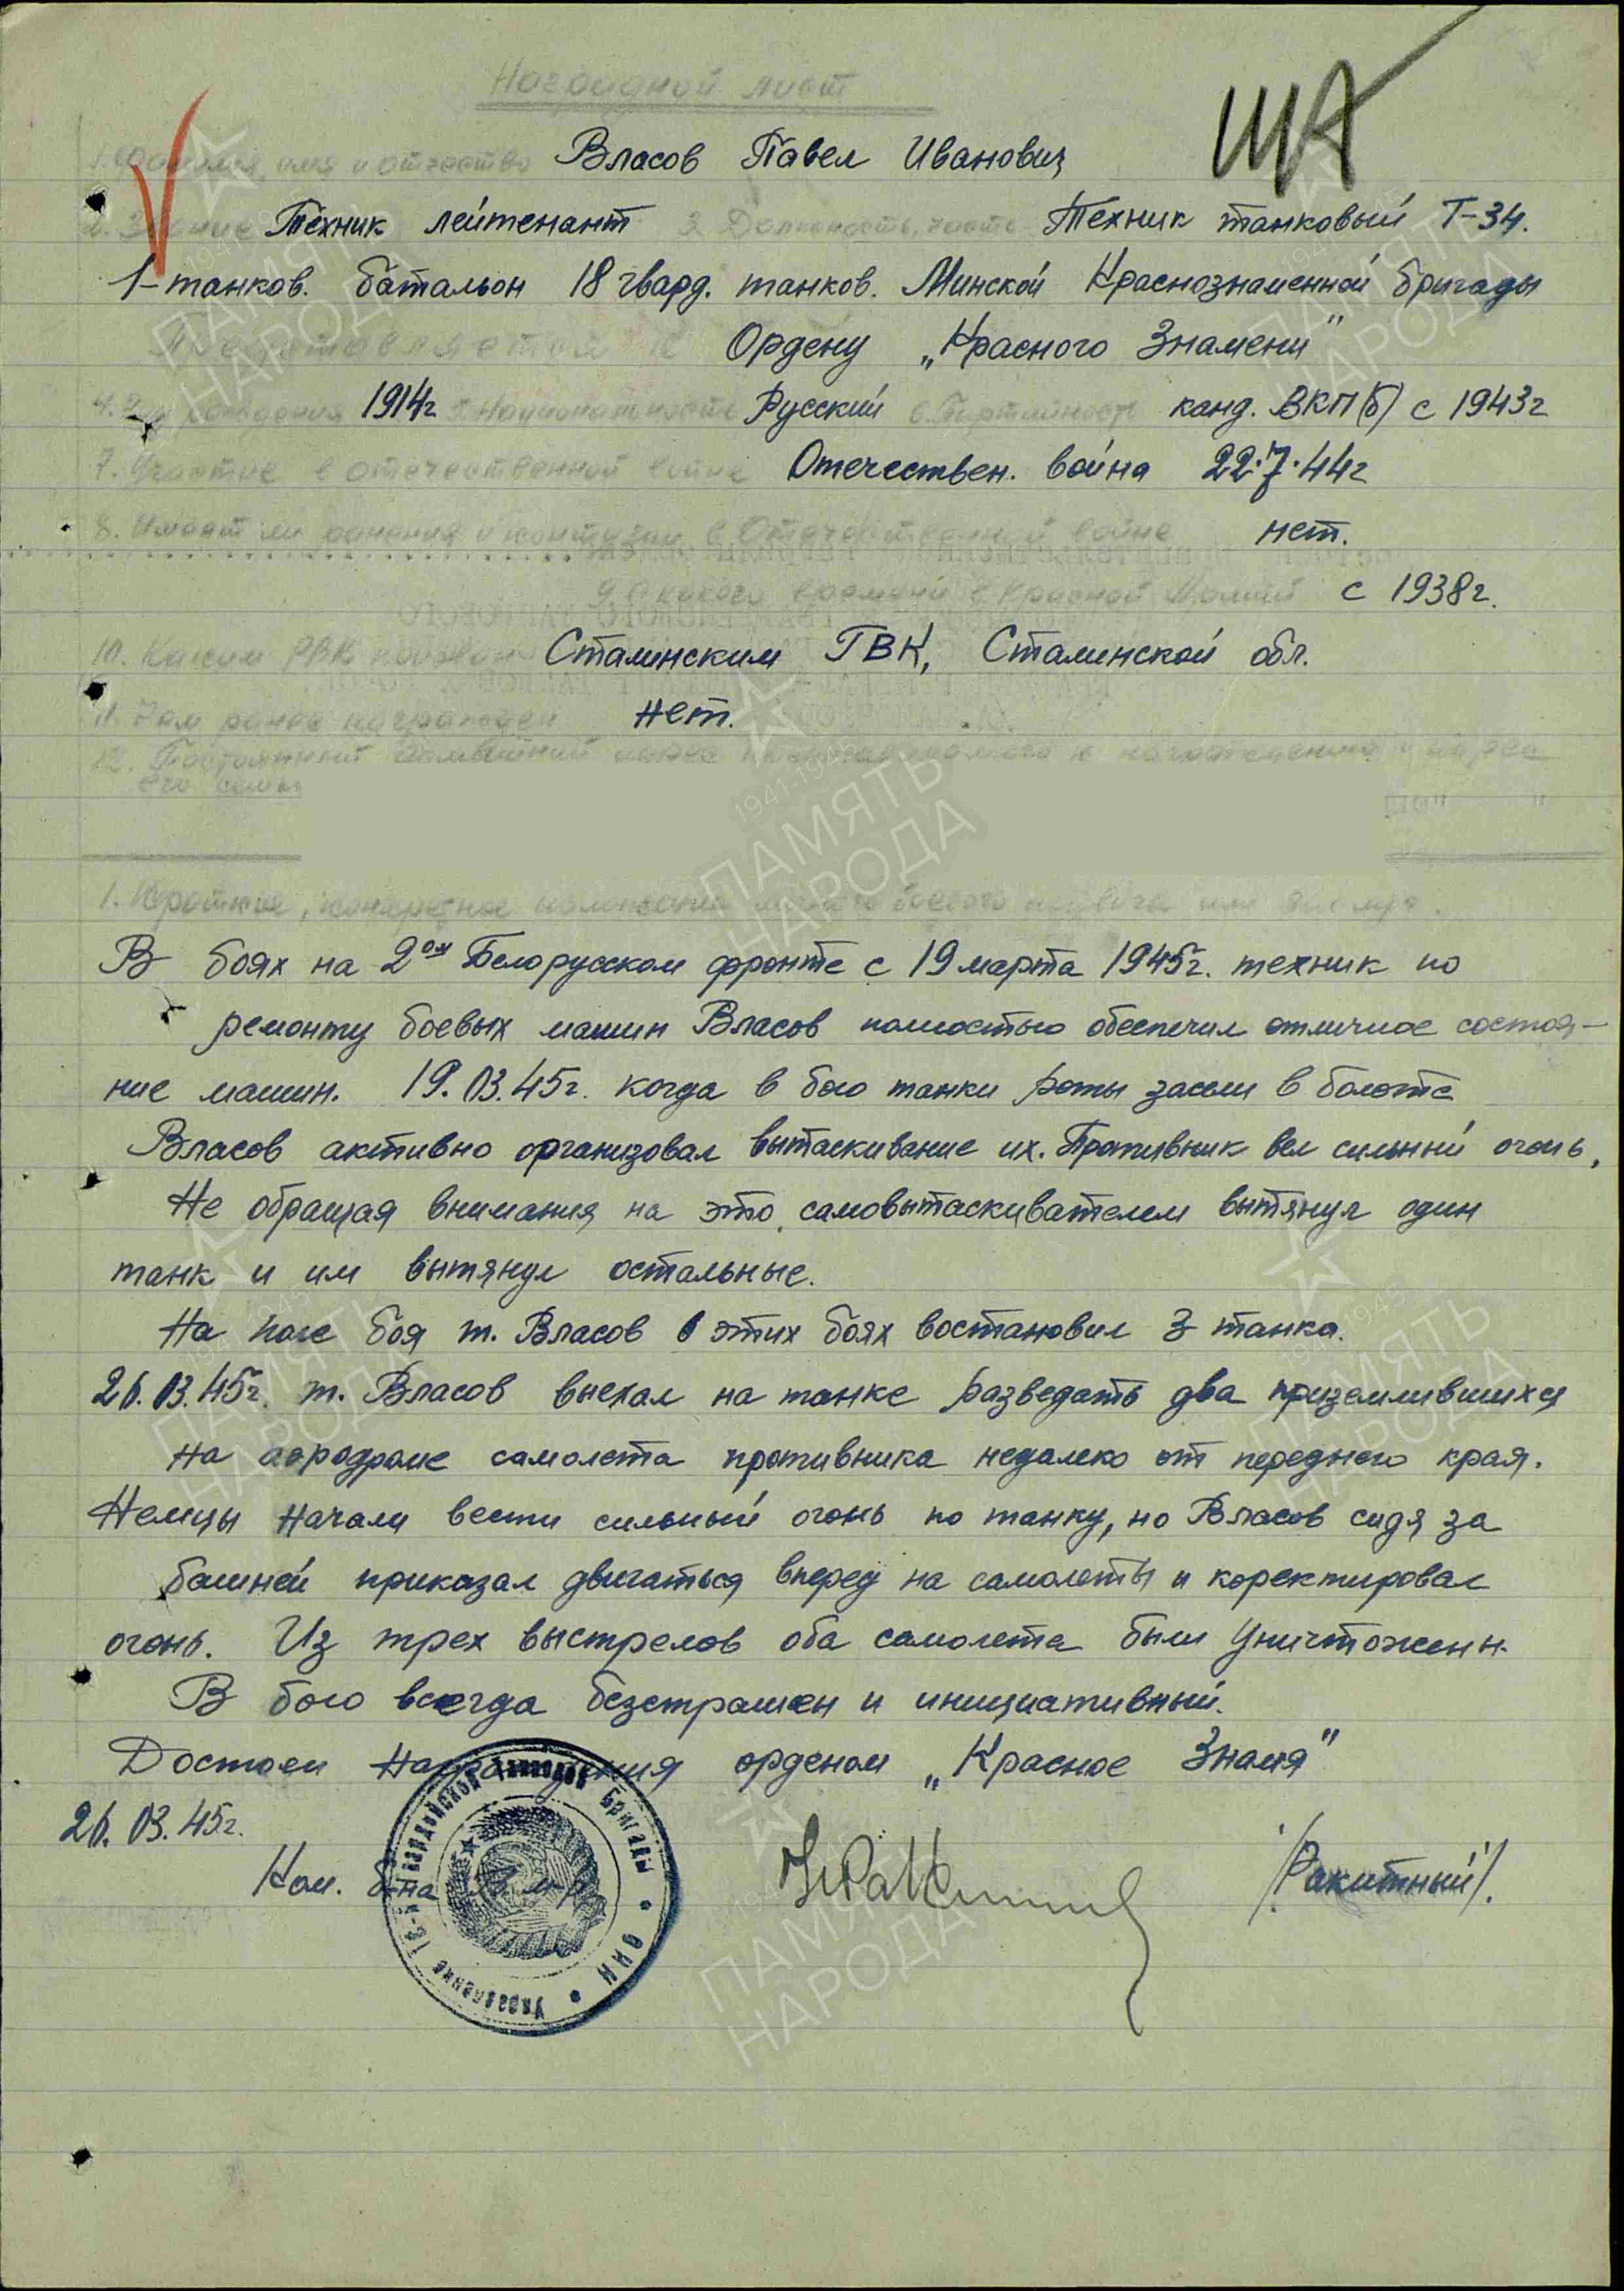 Наградной лист
ША
1. Фамилия, имя и отчество Власов Павел Иванович
2. Звание Техник лейтенант 3. Должность, часть Техник танковый Т-34.
1-танков. батальон 18 гвард. танков. Минской Краснознаменной бригады
Представляется к Ордену „Красного Знамени"
4. Год рождения 1914г 5. Национальность Русский 6. Партийность канд. ВКП(б) с 1943г
7. Участие в отечественной войне Отечествен. война 22.7.44г
8. Имеет ли ранения и контузии в Отечественной войне нет.
9. С какого времени в Красной Армии с 1938г.
10. Каким РВК призван Сталинским ГВК, Сталинской обл.
11. Чем ранее награжден нет.
12. Постоянный домашний адрес представляемого к награждению и адрес
его семьи
1. Краткое, конкретное изложение личного боевого подвига или заслуг.
В боях на 2ом Белорусском фронте с 19 марта 1945г. техник по
ремонту боевых машин Власов полностью обеспечил отличное состоя-
ние машин. 19.03.45г. когда в бою танки роты засели в болоте
Власов активно организовал вытаскивание их. Противник вел сильный огонь,
Не обращая внимания на это, самовытаскивателем вытянул один
танк и им вытянул остальные.
На поле боя т. Власов в этих боях востановил 3 танка.
26.03.45г. т. Власов выехал на танке разведать два приземлившихся
на аэродроме самолета противника недалеко от переднего края.
Немцы начали вести сильный огонь по танку, но Власов сидя за
башней приказал двигаться вперед на самолеты и коректировал
огонь. Из трех выстрелов оба самолета были уничтожены.
В бою всегда безстрашен и инициативный.
Достоен награждения орденом „Красное Знамя"
26.03.45г.
Ком. б-на м-р /Ракитный/.
Управление 18-й гвардейской танковой бригады * НКО *
ПАМЯТЬ
НАРОДА
1941-1945